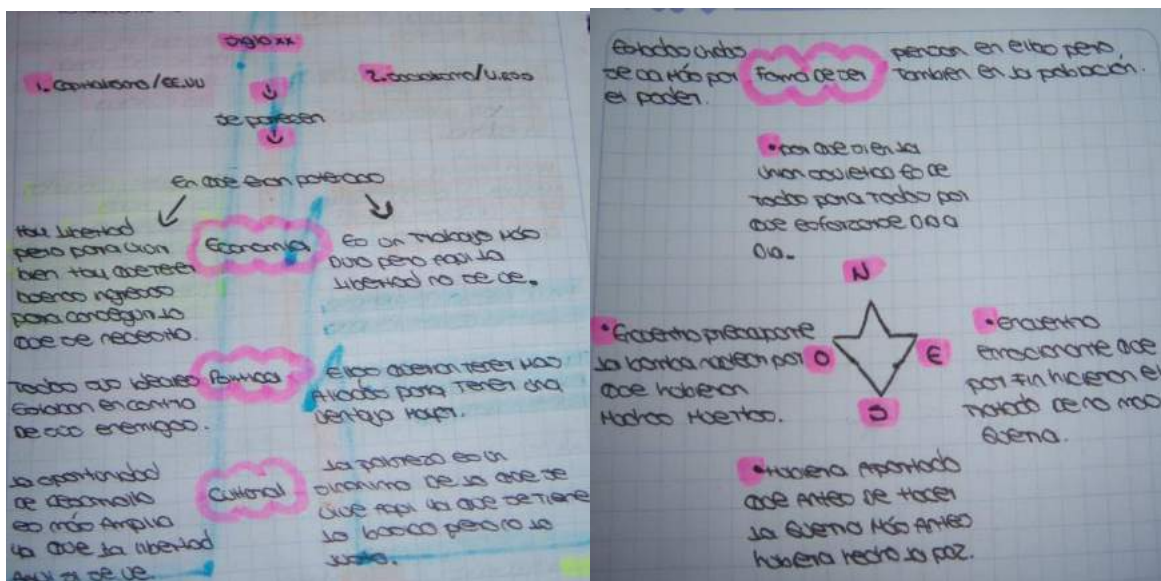 Siglo xx
1. Capitalismo/EE.UU
2. Socialismo/U.RSS
se parecen
En que eran potencias
Hay libertad
pero para vivir
bien hay que tener
buenos ingresos
para conseguir lo
que se necesita.
Economia
Es un trabajo más
duro pero aqui la
libertad no se ve.
Todos sus ideales
estaban en contra
de sus enemigos.
Politica
Ellos querian tener más
Aliados para tener una
ventaja mayor.
la oportunidad
de desarrollo
es más Amplia
ya que la libertad
Aqui si se ve.
Cultural
la pobreza es un
sinonimo de la que se
vive aqui ya que se tiene
lo basico pero no lo
justo.
Estados Unidos
se va más por
el poder.
Forma de ser
piensan en ellos pero,
tambien en la población.
•por que si en la
union sovietica es de
todos para todos por
que esforzarse dia a
dia.
N
O
E
S
•Encuentro preocupante
la bomba nuclear por
que hubieron
Muchos Muertos.
•encuentro
emocionante que
por fin hicieron el
tratado de no mas
guerra.
•Hubiera Aportado
que Antes de Hacer
la guerra Más Antes
hubiera hecho la paz.